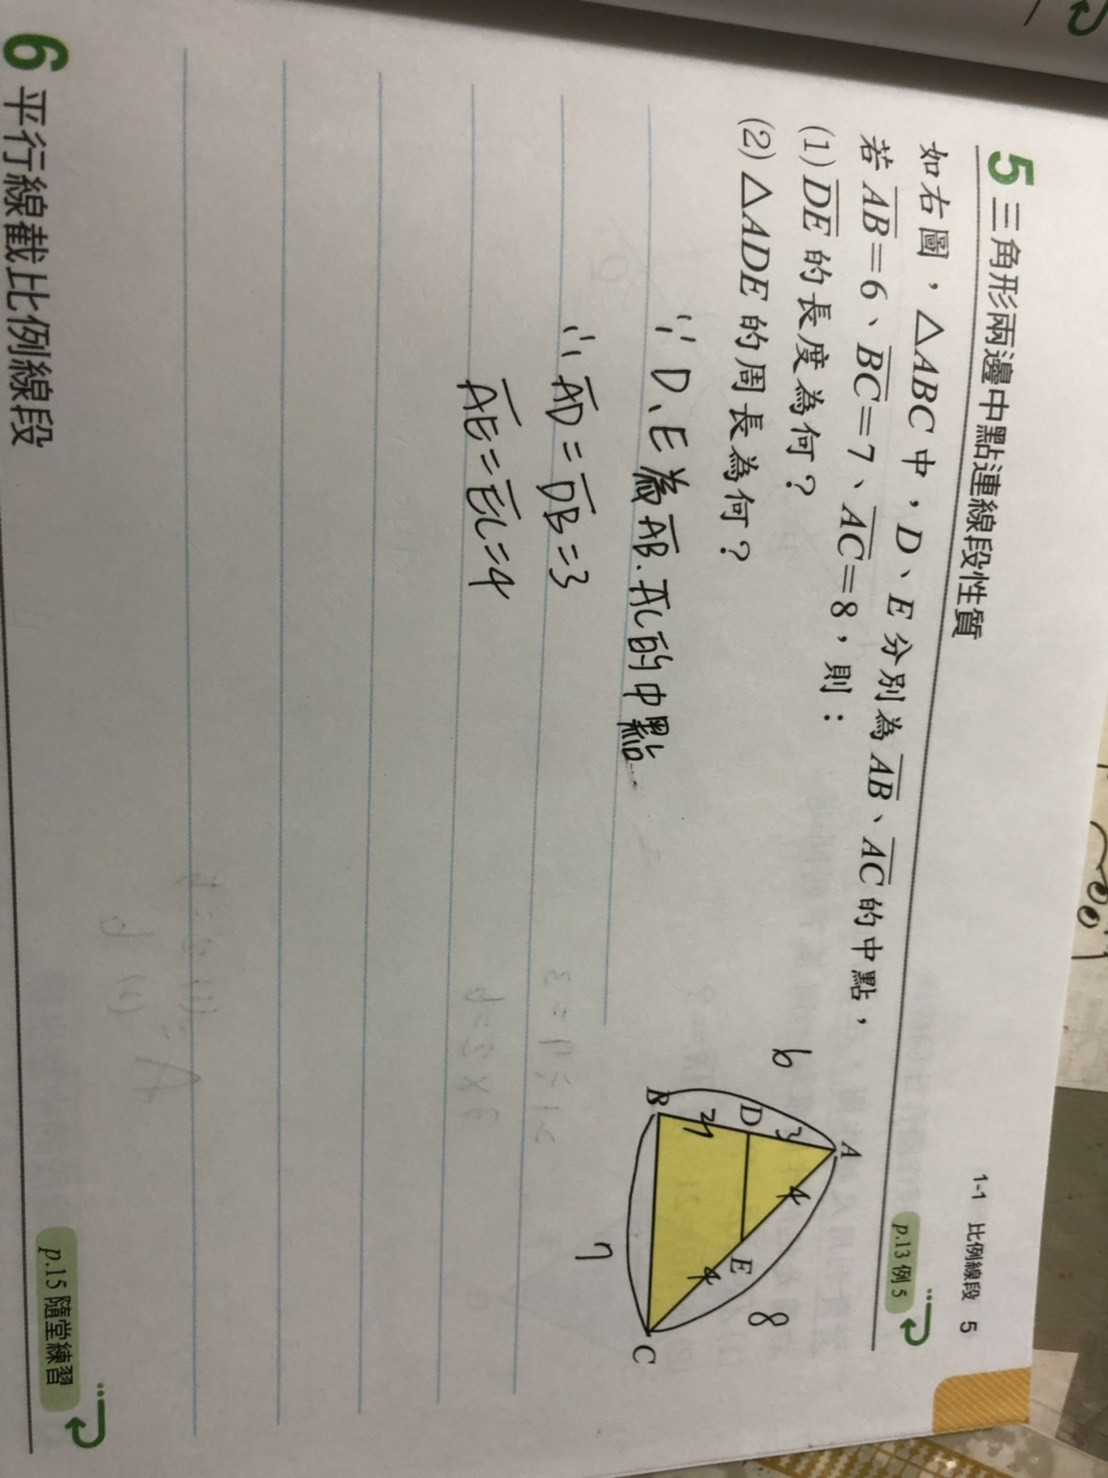 1-1 比例線段 5
5 三角形兩邊中點連線段性質
p.13 例 5
如右圖，△ABC 中，D、E 分別為 AB、AC 的中點，
若 AB=6、BC=7、AC=8，則：
(1) DE 的長度為何？
(2) △ADE 的周長為何？
A
3
4
6
D
E
8
3
4
B
C
7
∵ D、E 為 AB、AC 的中點
∴ AD = DB = 3
AE = EC = 4
6 平行線截比例線段
p.15 隨堂練習